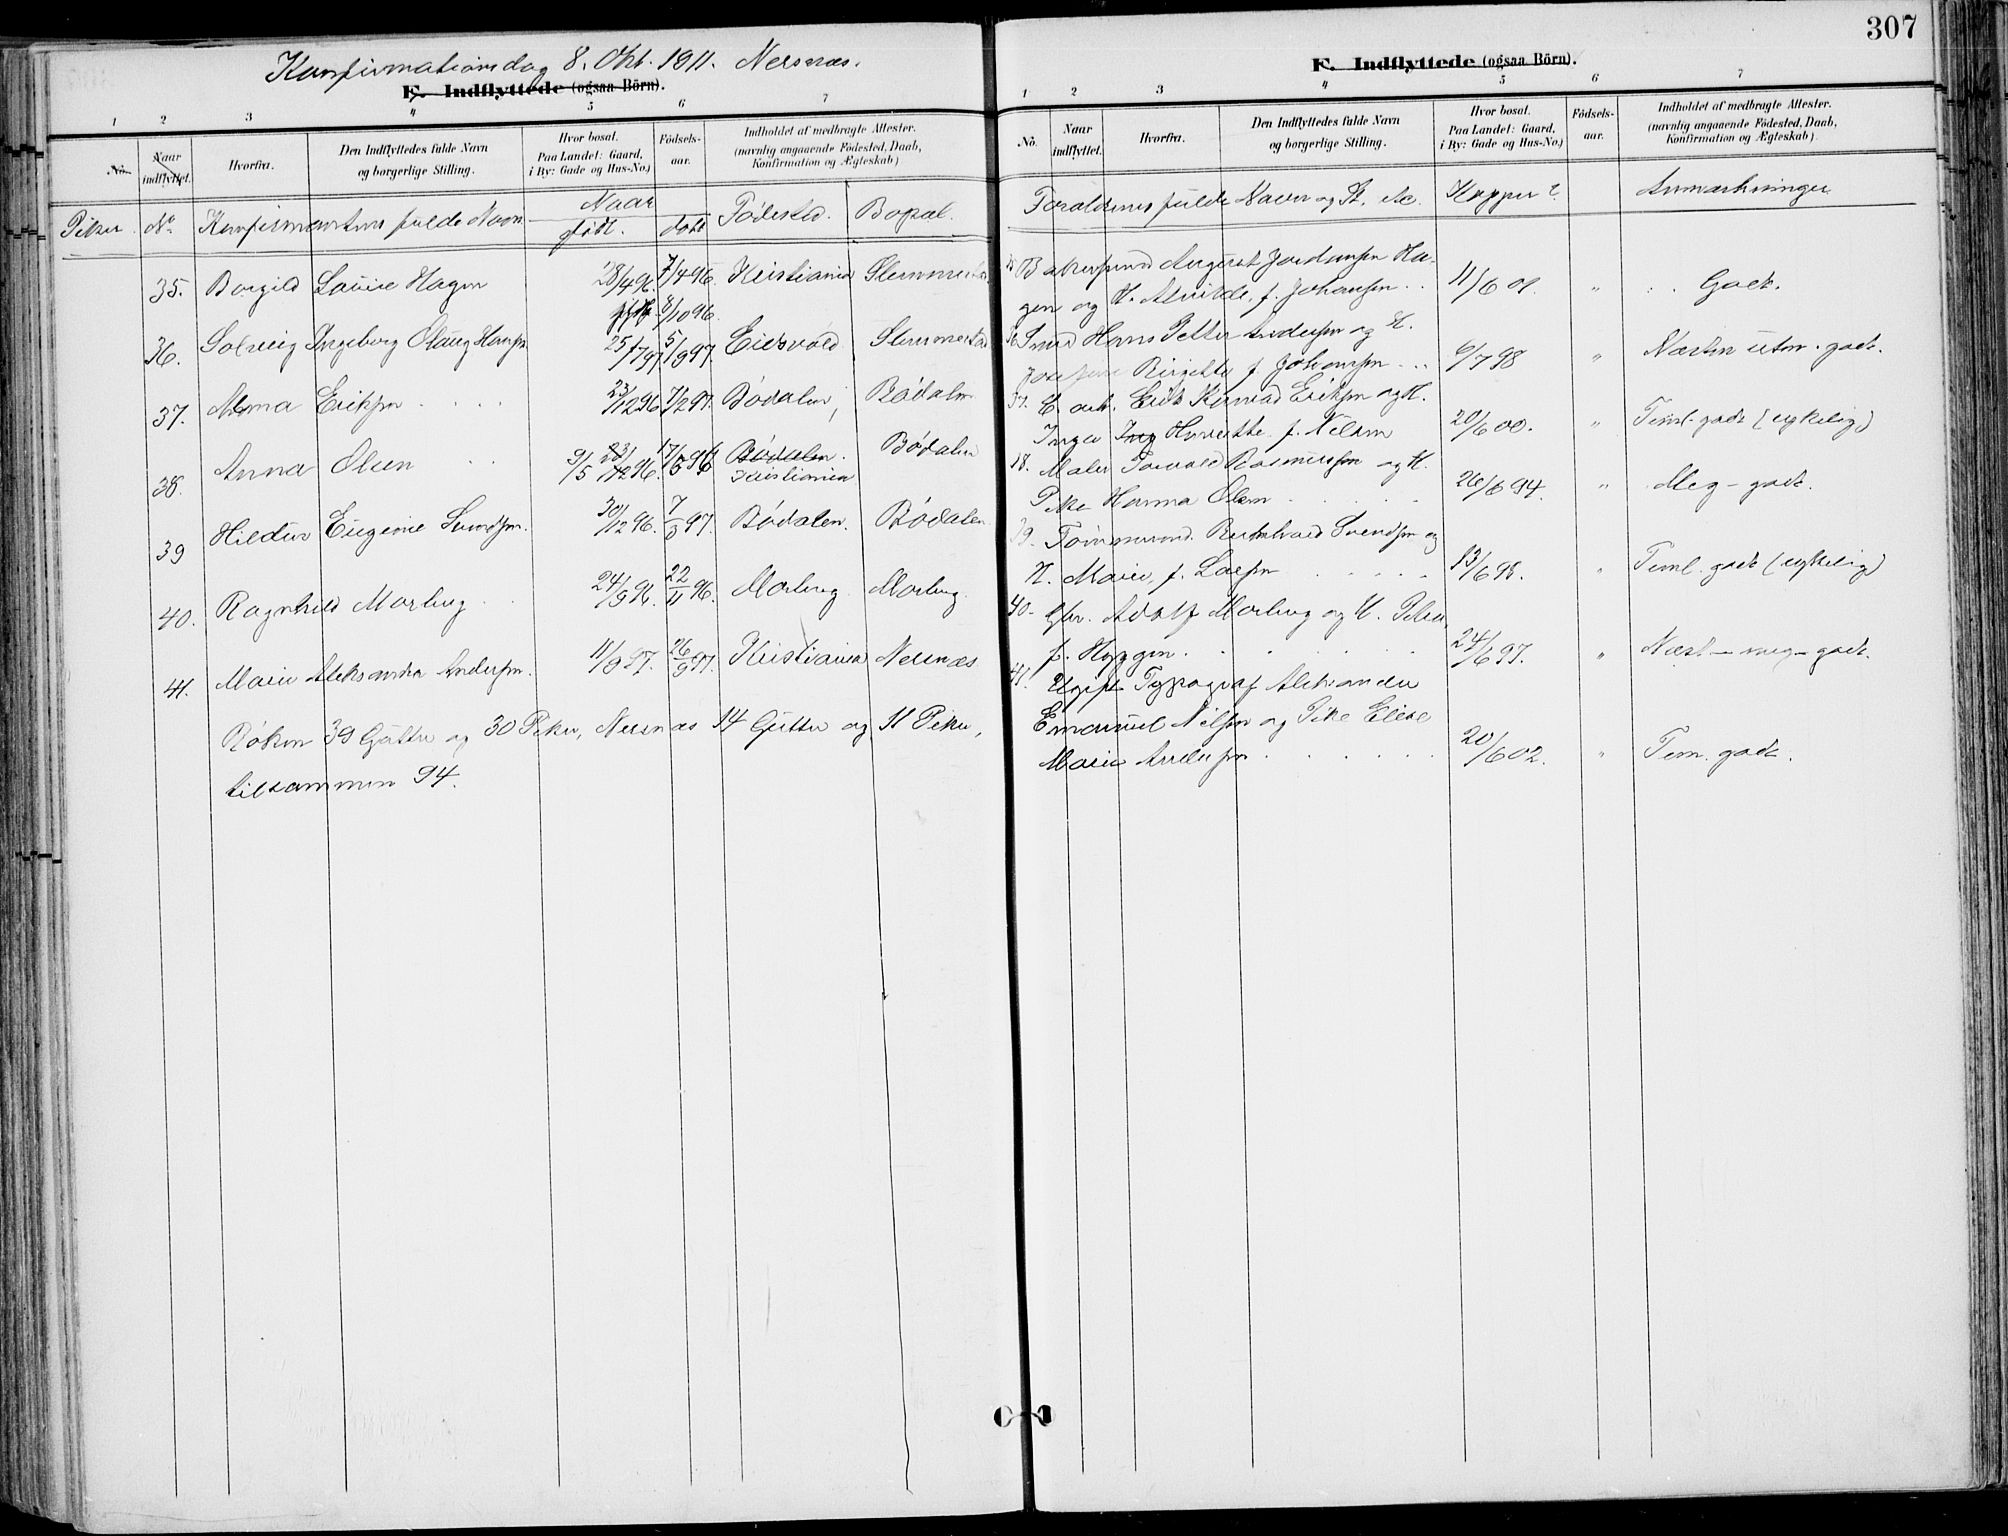 307
Konfirmationsdag 8. Okt. 1911. Nersnæs.
F. Indflyttede (ogsaa Börn).
1 2 3 4 5 6 7
No.
Naar indflyttet.
Hvorfra.
Den Indflyttedes fulde Navn og borgerlige Stilling.
Hvor bosat. Paa Landet: Gaard, i By: Gade og Hus-No.)
Födsels-aar.
Indholdet af medbragte Attester. (navnlig angaaende Födested, Daab, Konfirmation og Ægteskab)
Piker. No. Konfirmantens fulde Navn. Naar født. døbt Fødested. Bopæl.
35. Borgild Louise Hagen 28/4 96. Kristiania
36. Solveig Ingeborg Olaug 25/7 97. 5/9 97. Eidsvold
37. Alma Eriksen 23/12 96 7/2 97. Bødalen, Bødalen
38. Anna Olsen 9/5 Bødalen. Kristiania Bødalen
39 Hildur Eugenie Svendsen. 30/12 96. 7/3 97. Bødalen. Bødalen
40. Ragnhild Morberg 24/9 96. 22/11 96. Morberg Morberg.
41. Marie Aleksandra Andersen. 11/8 97. 26/9 97. Kristiania Nersnæs
Røken 39 Gutter og 30 Piker, Nersnæs 14 Gutter og 11 Piker,
tilsammen 94.
F. Indflyttede (ogsaa Börn).
1 2 3 4 5 6 7
No.
Naar indflyttet.
Hvorfra.
Den Indflyttedes fulde Navn og borgerlige Stilling.
Hvor bosat. Paa Landet: Gaard, i By: Gade og Hus-No.)
Födsels-aar.
Indholdet af medbragte Attester. (navnlig angaaende Födested, Daab, Konfirmation og Ægteskab)
Forældrenes fulde Navn og St. etc. Kopper? Anmærkninger
August Ha-
gen og H. Alvilde, f. Johansen .. 11/6 01. " Godt.
Smed Hans Petter Andersen og H.
Josefine Birgitte f. Johansen ... 6/7 98 " Næsten utm. godt.
37. Erik Konrad Eriksen og H.
Inga Henriette f. Nilsen 20/6 00. " Teml. godt (ugkelig)
38. Maler Torvald Rasmussen og H.
Pike Hanna Olsen 26/6 94. " Meg. godt.
39. Tømmermd. Svendsen og
H. Marie, f. Larsen 13/6 98. " Teml. godt
40. Gbr. Adolf Morberg og H.
f. Hyggen. 24/6 97. " Næst. meg. godt.
41. Ugift Typograf Aleksander
Emanuel Nilsen og Pike Elise
Marie Andersen 20/6 02. " Tem. godt.